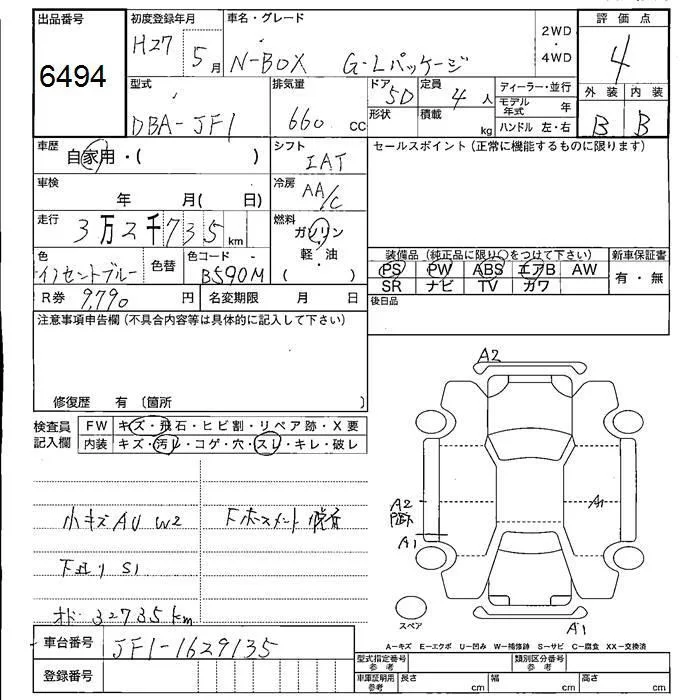 出品番号
6494
初度登録年月
H27 5月
車名・グレード
N-BOX G・Lパッケージ
2WD
・
4WD
評価点
4
型式
DBA-JF1
排気量
660 cc
ドア 5D
形状
定員 4人
積載 kg
ディーラー・並行
モデル年式 年
ハンドル 左・右
外装 内装
B B
車歴
自家用・( )
シフト
IAT
セールスポイント(正常に機能するものに限ります)
車検
年 月( 日)
冷房
AA/C
走行
3万2千735km
燃料
ガソリン
軽・油
( )
色
イノセントブルー
色替
色コード
B590M
装備品(純正品に限り○をつけて下さい)
新車保証書
PS PW ABS エアB AW
有・無
SR ナビ TV ガワ
R券 9,790円
名変期限 月 日
後日品
注意事項申告欄(不具合内容等は具体的に記入して下さい)
修復歴 有〔箇所 〕
検査員
記入欄
FW キズ・飛石・ヒビ割・リペア跡・X要
内装 キズ・汚レ・コゲ・穴・スレ・キレ・破レ
小キズ AU W2
下廻り S1
オド 32735km
A2
A2
A1
A1
A1
スペア
A-キズ E-エクボ U-凹み W-補修跡 S-サビ C-腐食 XX-交換済
車台番号
JF1-1629135
登録番号
型式指定番号
参考
類別区分番号
参考
車庫証明用
参考
長さ cm
幅 cm
高さ cm